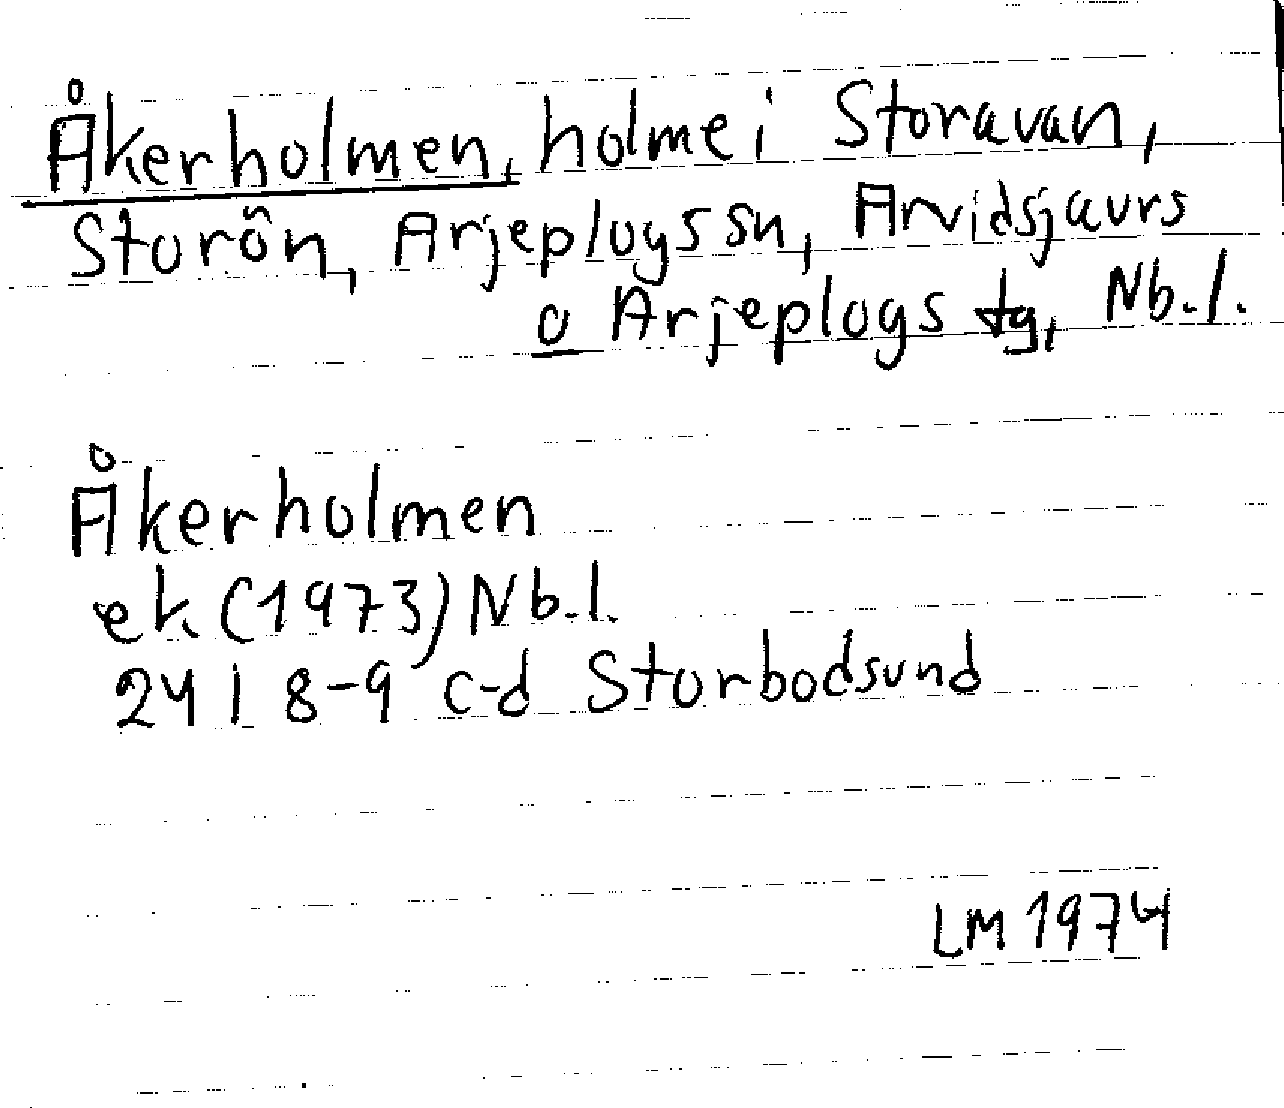 Åkerholmen, holme i Storavan,
Storön, Arjeplogs sn, Arvidsjaurs
o Arjeplogs tg, Nb.l.
Åkerholmen
ek (1973) Nb.l.
24 I 8-9 c-d Storbodsund
LM 1974